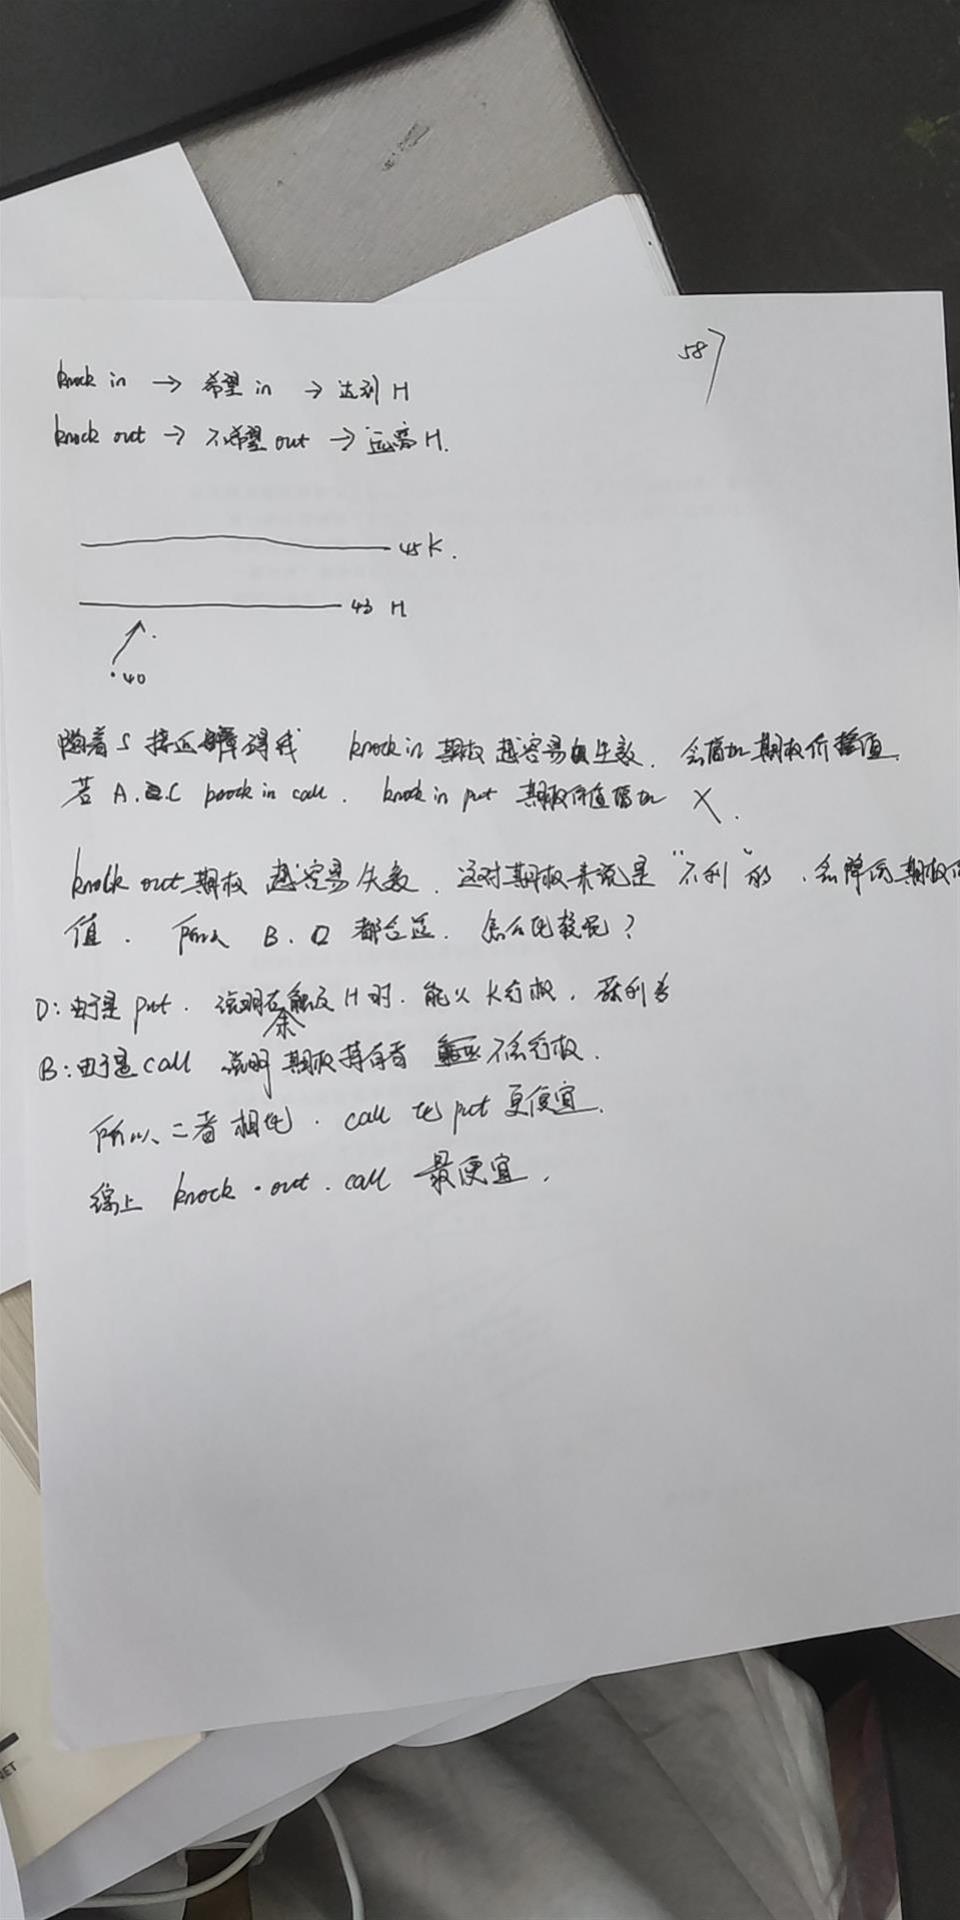 58
knock in → 希望 in → 达到 H
knock out → 不希望 out → 远离 H.
45 K.
43 H
.40
随着 S 接近障碍线 knock in 期权越容易生效. 会增加期权价值
若 A. C knock in call. knock in put 期权价值增加 X.
knock out 期权 越容易失效. 这对期权来说是 "不利" 的, 会降低期权价
值. 所以 B. D 都合适. 怎么比较呢?
D: 由于是 put. 说明在触及 H 时. 能以 K 行权. 获利多
B: 由于是 call 说明 期权持有者 不会行权.
所以、二者相比. call 比 put 更便宜.
综上 knock · out · call 最便宜.
NET